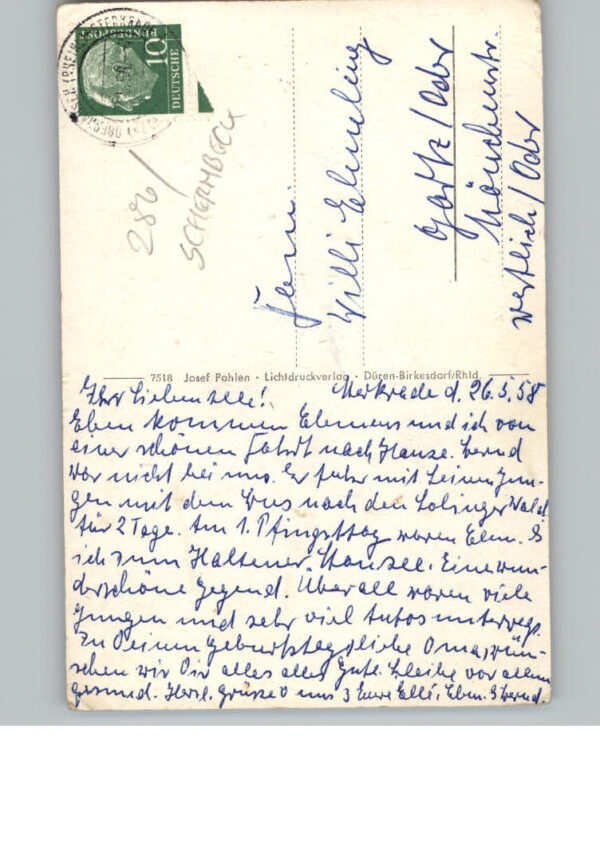 DEUTSCHE
BUNDESPOST
10
286/
SCHERMBECK
Willi
Gartz/Oder
Mönchenstr.
westlich/Oder
7518 Josef Pohlen · Lichtdruckverlag · Düren-Birkesdorf/Rhld.
Ihr Lieben alle! d. 26.5.58
Eben kommen Clemens und ich von
einer schönen Fahrt nach Hause. Bernd
war nicht bei uns. Er fuhr mit seinen Jun-
gen mit dem Bus nach den Solinger Wald
für 2 Tage. Am 1. Pfingsttag waren Clem. &
ich zum Halterner Stausee. Eine wun-
derschöne Gegend. Überall waren viele
Jungen und sehr viel Autos unterwegs.
Zu Deinem Geburtstag, liebe Oma, wün-
schen wir Dir alles alles Gute. Bleibe vor allem
gesund. Herzl. Grüsse v uns 3 Eure Elli, Clem. & Bernd.